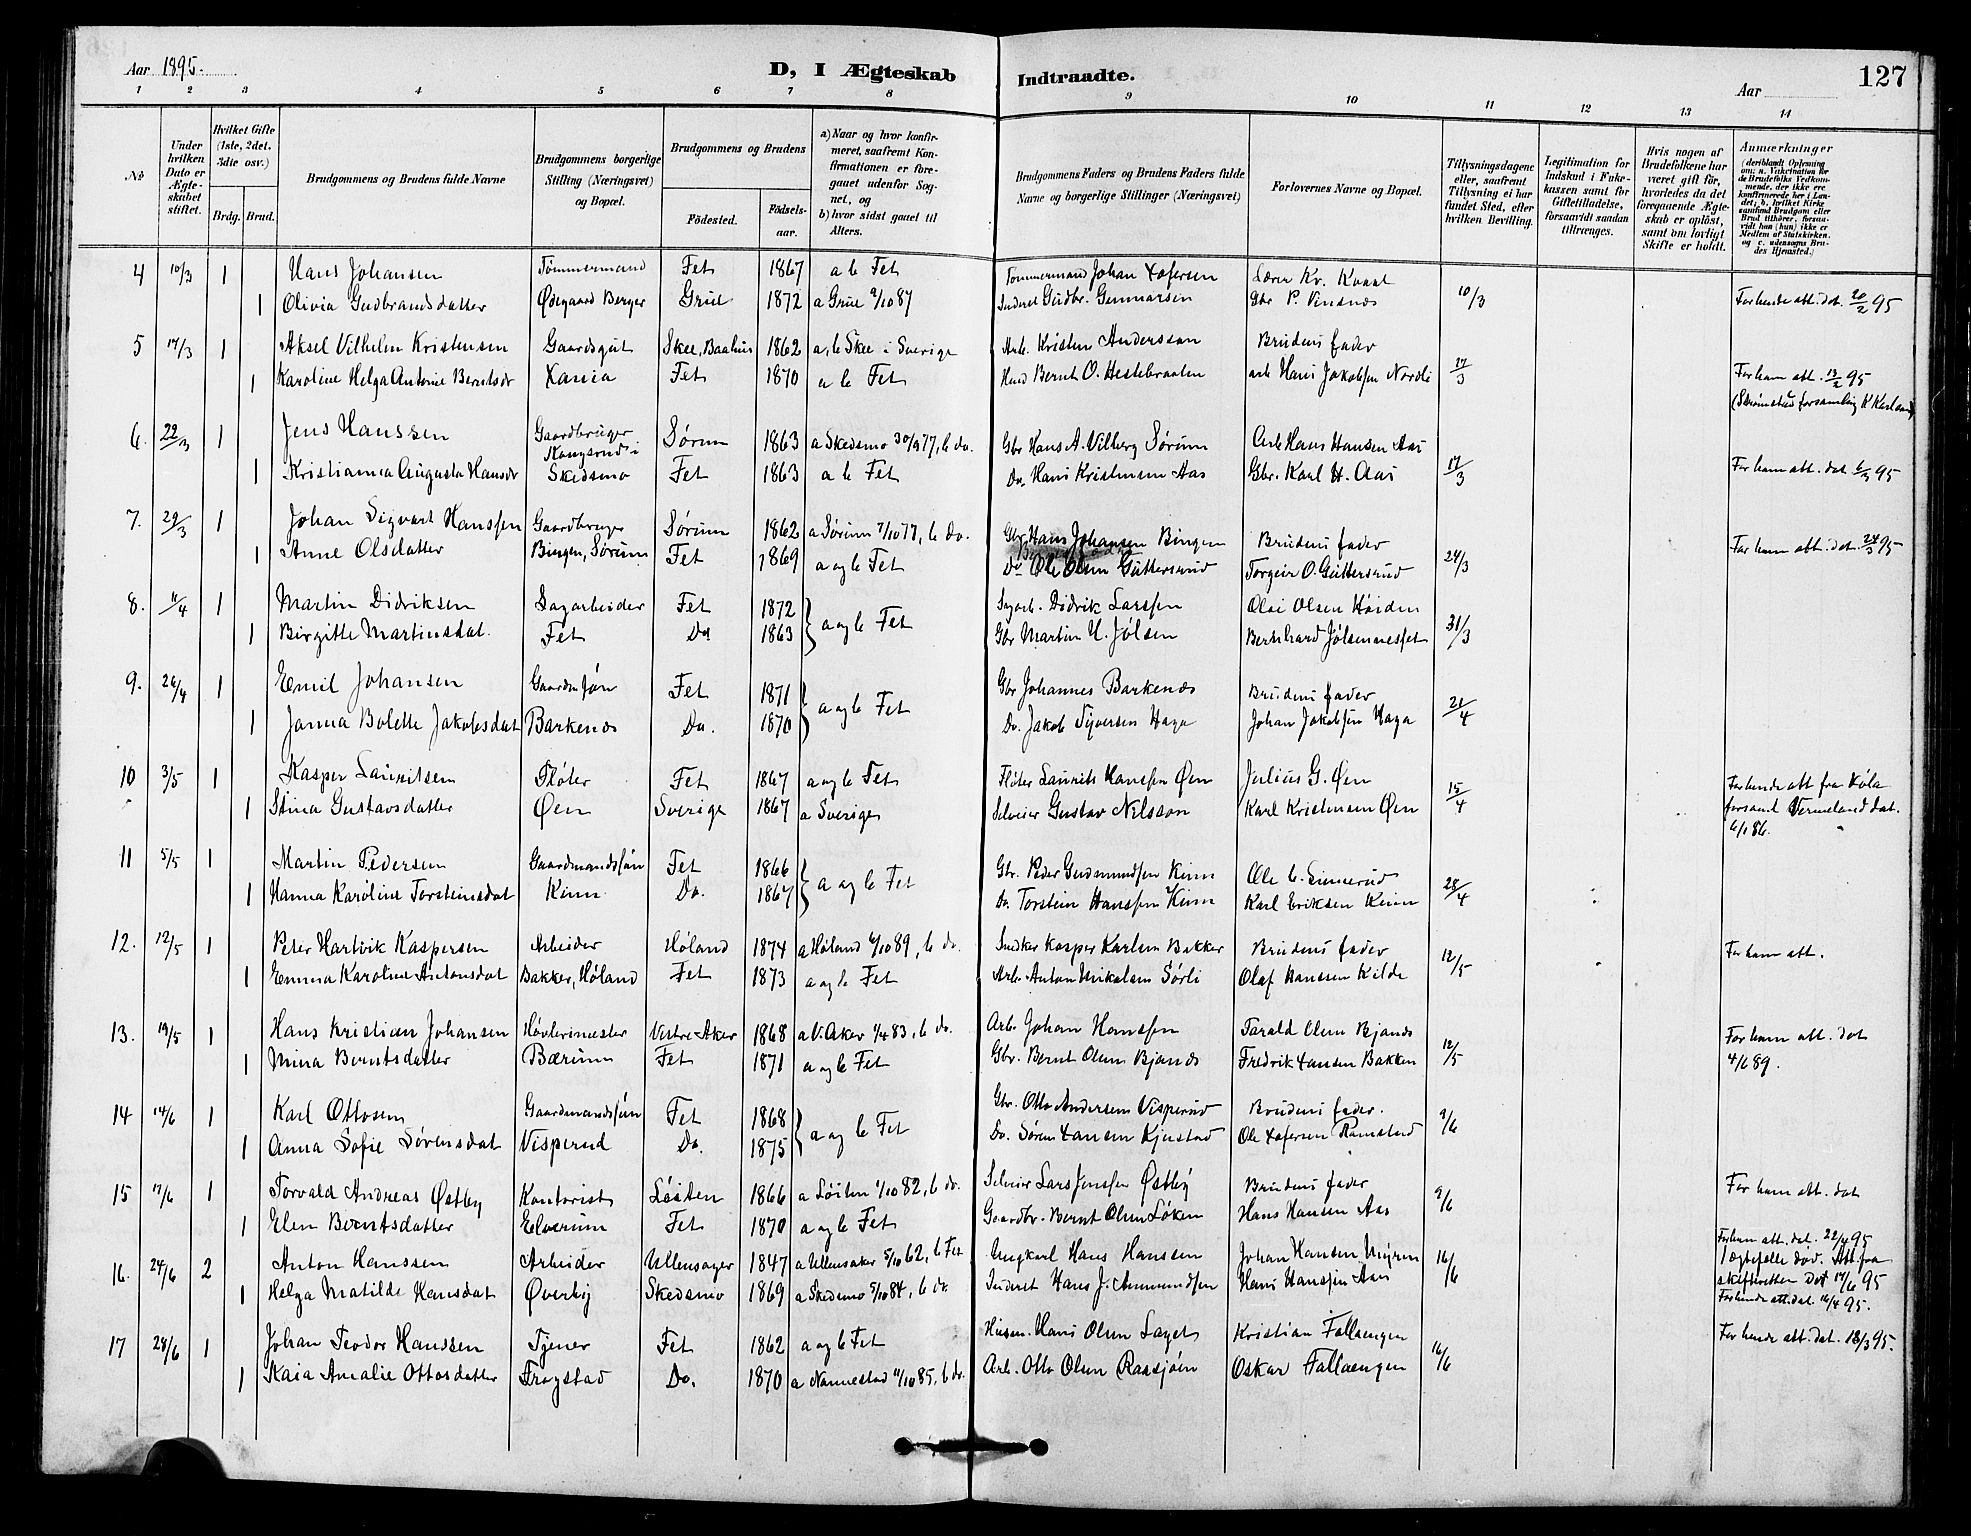 Aar 1895.
D, I Ægteskab Indtraadte.
Aar
127
1 2 3 4 5 6 7 8 9 10 11 12 13 14
No
Under hvilken Dato er Ægteskabet stiftet.
Hvilket Gifte (1ste, 2det, 3die osv.)
Brdg. Brud.
Brudgommens og Brudens fulde Navne
Brudgommens borgerlige Stilling (Næringsvei) og Bopæl.
Brudgommens og Brudens
Fødested.
Fødselsaar.
a) Naar og hvor konfirmeret, saafremt Konfirmationen er foregaaet udenfor Sognet, og
b) hvor sidst gaaet til Alters.
Brudgommens Faders og Brudens Faders fulde Navne og borgerlige Stillinger (Næringsvei)
Forlovernes Navne og Bopæl.
Tillysningsdagene eller, saafremt Tillysning ei har fundet Sted, efter hvilken Bevilling.
Legitimation for Indskud i Fukekassen samt for Giftetilladelse, forsaavidt saadan tiltrænges.
Hvis nogen af Brudefolkene har været gift før, hvorledes da det foregaaende Ægteskab er opløst, samt om lovligt Skifte er holdt.
Anmærkninger (deriblandt Oplysning om: a. Vakcination for de Brudefolks Vedkommende, der ikke ere konfirmerede her i Landet; b. hvilket Kirkesamfund Brudgom eller Brud tilhører, forsaavidt han (hun) ikke er Medlem af Statskirken, og c. udensogns Brudes Hjemsted.)
4 10/3 1 Hans Johansen Tømmermand Fet 1867 a b Fet Tømmermand Johan Xofersen Lærer Kr. Kvaal
1 Olivia Gudbrandsdatter Ødegaard Berger Grue 1872 a Grue 2/10 87 Inderst Gudbr. Gunnarsen Gbr P. Vinsnes 10/3 For hende att. dat. 20/2 95
5 17/3 1 Aksel Vilhelm Kristensen Gaardsgut Skee, Baahus 1862 a, b Skee i Sverige Arb. Kristen Andersson Brudens fader
1 Karoline Helga Antonie Berntsdr Xania Fet 1870 a b Fet Husm Bernt O. Hestebraaten arb Hans Jakobsen Nordli For ham att. 13/2 95
(Strømstad forsamling K Karlsand)
6. 22/3 1 Jens Hanssen Gaardbruger Kongsrud i Sørum 1863 a Skedsmo 30/9 77, b do. Gbr Hans A. Vilberg Sørum Arb Hans Hansen Aas
1 Kristianna Augusta Hansdr Skedsmo Fet 1863 a b Fet Do. Hans Kristensen Aas Gbr. Karl H. Aas 17/3 For ham att. dat 6/3 95
7. 29/3 1 Johan Sigvart Hanssen Gaardbruger Sørum 1862 a Sørum 7/10 77, b Do. Gbr Hans Johansen Bingen Brudens fader For ham att. dat. 24/3 95
1 Anne Olsdatter Bingen, Sørum Fet 1869 a og b Fet Do Ole Olsen Guttersrud Torgeir O. Guttersrud 24/3
8. 11/4 1 Martin Didriksen Sagarbeider Fet 1872 a og b Fet Sagarb. Didrik Larssen Olai Olsen Høiden
1 Birgitte Martinsdat. Fet Do 1863 Gbr Martin U. Jølsen Bernhard Jølsennesset 31/3
9. 26/4 1 Emil Johansen Gaardm søn Fet 1871 a og b Fet Gbr Johannes Barkenes Brudens fader
1 Janna Bolette Jakobsdat Barkenes Do. 1870 Do. Jakob Syversen Haga Johan Jakobsen Haga 21/4
10 3/5 1 Kasper Lauritsen Fløter Fet 1867 a og b Fet Fløter Laurits Hanssen Øen Julius G. Øen For hende att fra Køla
1 Stina Gustavsdatter Øen Sverige 1867 a Sverige Selveier Gustav Nilsson Karl Kristensen Øen 15/4 forsaml Vermeland dat.
6/1 86.
11 5/5 1 Martin Pedersen Gaardmandssøn Fet 1866 a og b Fet Gbr. Peder Gudmundsen Kinn
1 Hanna Karoline Torsteinsdat Kinn Do. 1867 Do. Torstein Hanssen Kinn Karl Eriksen Kinn 28/4
12. 12/5 1 Peter Hartvik Kaspersen Arbeider Høland 1874 a Høland 6/10 89, b do. Snedker Kasper Karlsen Bakker Brudens fader For ham att.
1 Emma Karoline Antonsdat Bakker, Høland Fet 1873 a og b Fet Arb. Anton Nikolaisen Sørli Olaf Hansen Kilde 12/5
13. 19/5 1 Hans Kristian Johansen Høvlerimester Vestre Aker 1868 a V. Aker 1/4 83, b do. Arb. Johan Hanssen Tarald Olsen Bjanes For ham att. dat
1 Mina Berntsdatter Bærum Fet 1871 a og b Fet Gbr. Bernt Olsen Bjanes Fredrik Hansen Bakken 12/5 4/6 89.
14 14/6 1 Karl Ottosen Gaardmandssøn Fet 1868 a og b Fet Gbr. Otto Andersen Visperud Brudens fader.
1 Anna Sofie Sørensdat Visperud Do. 1875 Do. Søren Hansen Kjustad Ole Xofersen Ramstad 9/6
15 17/6 1 Torvald Andreas Østby Kontorist Løiten 1866 a Løiten 1/10 82, b do. Selveier Lars Jenssen Østby Brudens fader For ham att. dat
1 Elen Berntsdatter Elverum Fet 1870 a og b Fet Gaardbr. Bernt Olsen Løken Hans Hansen Aas 9/6
16. 24/6 2 Anton Hanssen Arbeider Ullensager 1847 a Ullensaker 5/10 62, b Fet Ungkarl Hans Hanssen Johan Hansen 16/6 For ham att. dat. 22/4 95
1 Helga Matilde Hansdat Øverby Skedsmo 1869 a Skedsmo 5/10 84, b do. Inderst Hans J. Ammundsen Hans Hanssen Aas
1 ægtefelle død. Att fra skifteretten Dat 17/6 95
For hende att. dat. 16/4 95.
17 28/6 1 Johan Teodor Hanssen Tjener Fet 1862 a og b Fet Husm. Hans Olsen Kristian Fallaengen For hende att. dat. 18/3 95.
1 Kaia Amalie Ottosdatter Frogstad Do. 1870 a Nannestad 11/10 85, b do. Arb. Otto Olsen Raasjøen Oskar Fallaengen 16/6